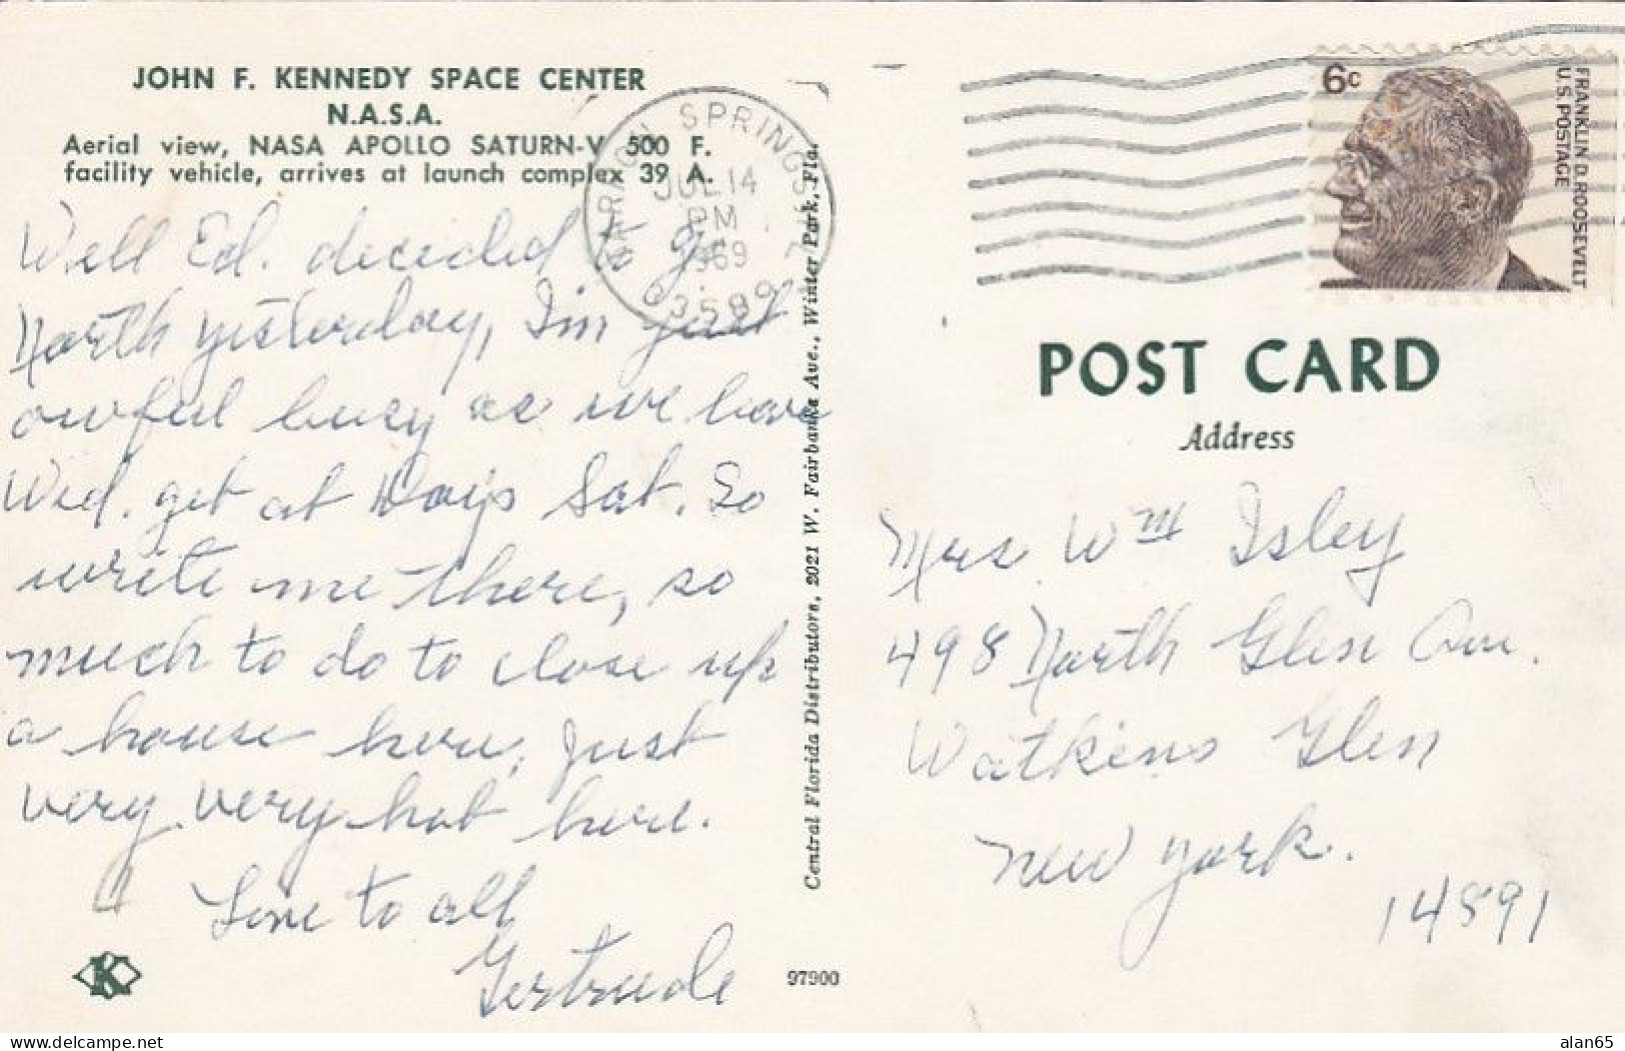 JOHN F. KENNEDY SPACE CENTER
N.A.S.A.
Aerial view, NASA APOLLO SATURN-V 500 F.
facility vehicle, arrives at launch complex 39 A.
Well Ed. decided to go
North yesterday, I'm just
awful busy as we leave
Wed. get at Days Sat. So
write me there, so
much to do to close up
a house here, Just
very, very hot here.
Love to all
Gertrude
K
Central Florida Distributors, 2021 W. Fairbanks Ave., Winter Park, Fla.
97900
SPRINGS
JUL 14
PM
1969
6c
FRANKLIN D. ROOSEVELT
U.S. POSTAGE
POST CARD
Address
Mrs Wm Isley
498 North Glen Ave.
Watkins Glen
New York.
14891
delcampe.net
alan65